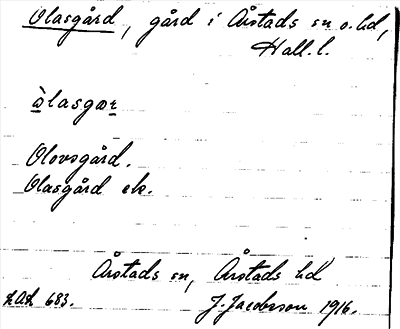 Olasgård, gård i Årstads sn o. hd,
Hall. l.
òlasgær
Olovsgård.
Olasgård ek.
Årstads sn, Årstads hd
683.
J. Jacobsson 1916.